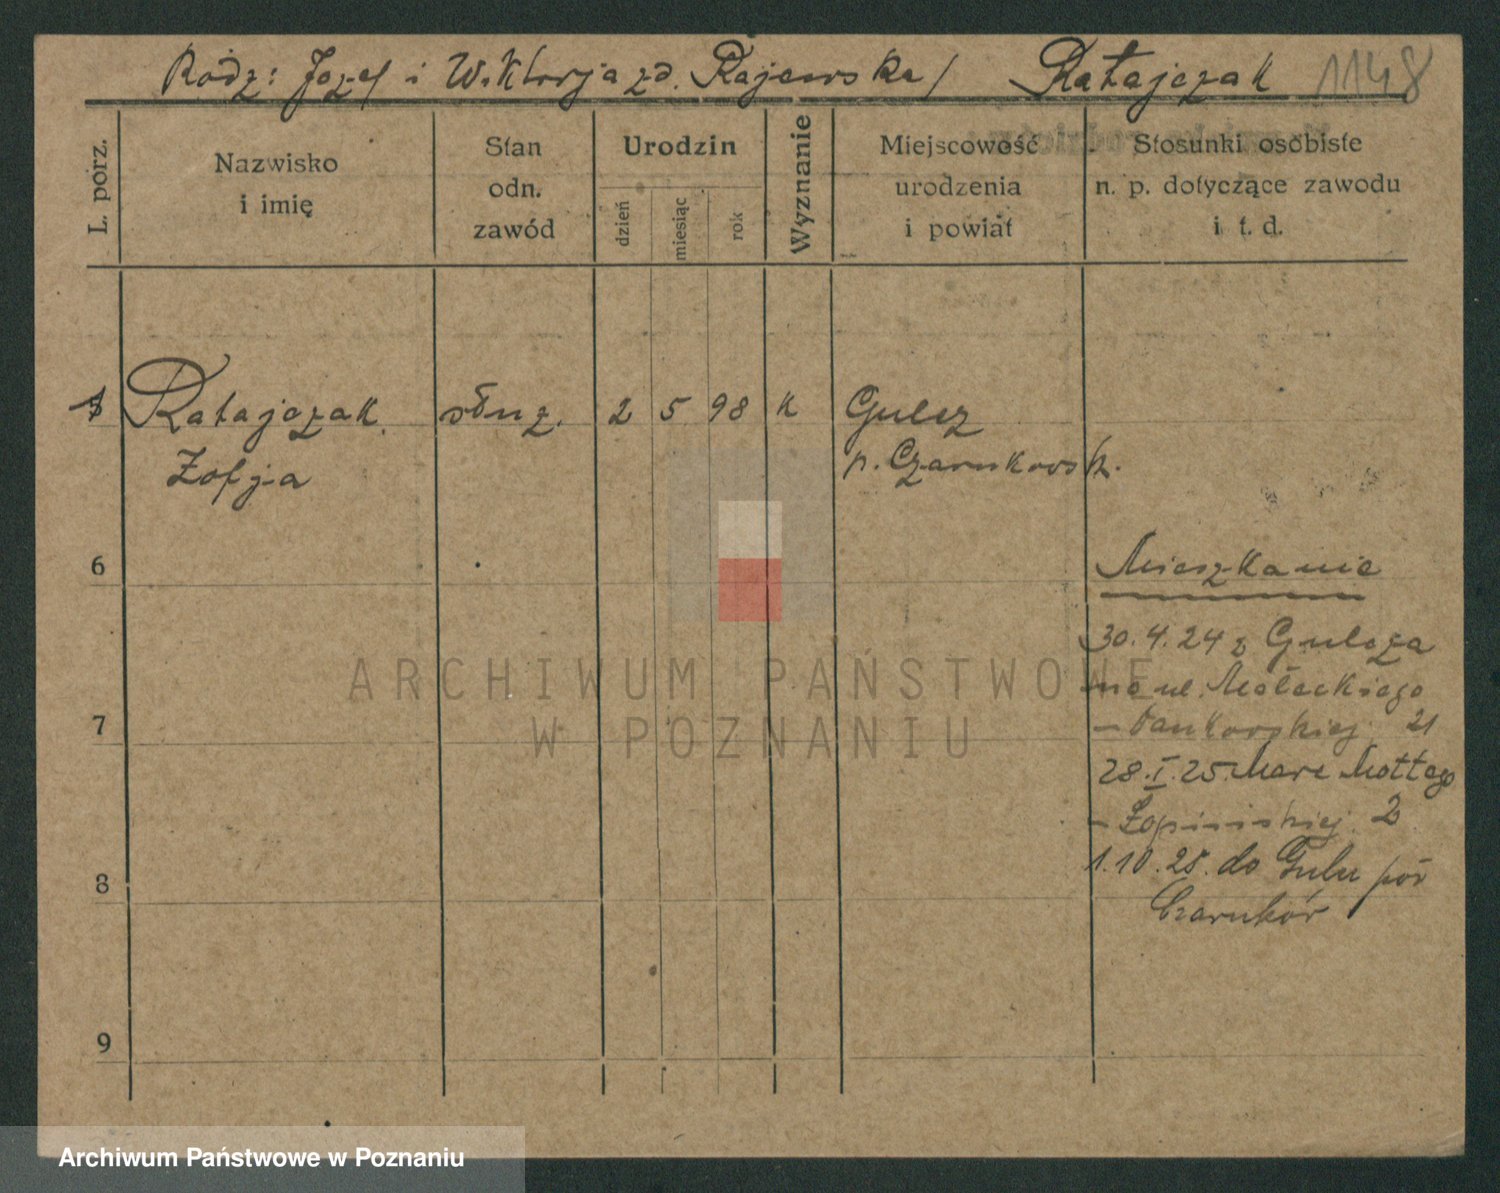 Rodz: Józef i Wiktorja zd. Rajewska / Ratajczak 1148
L. porz.
Nazwisko
i imię
Stan
odn.
zawód
Urodzin
dzień
miesiąc
rok
Wyznanie
Miejscowość
urodzenia
i powiat
Stosunki osobiste
n. p. dotyczące zawodu
i t. d.
Ratajczak służ. 2 5 98 k Gulcz
Zofja p. Czarnkowsk.
6
Mieszkanie
30.4.24 z Gulcza
na ul. Małeckiego
21
7
28.I.25. Marc Mottego
2
8
1.10.28. do pow
Czarnków
9
ARCHIWUM PAŃSTWOWE
W POZNANIU
Archiwum Państwowe w Poznaniu